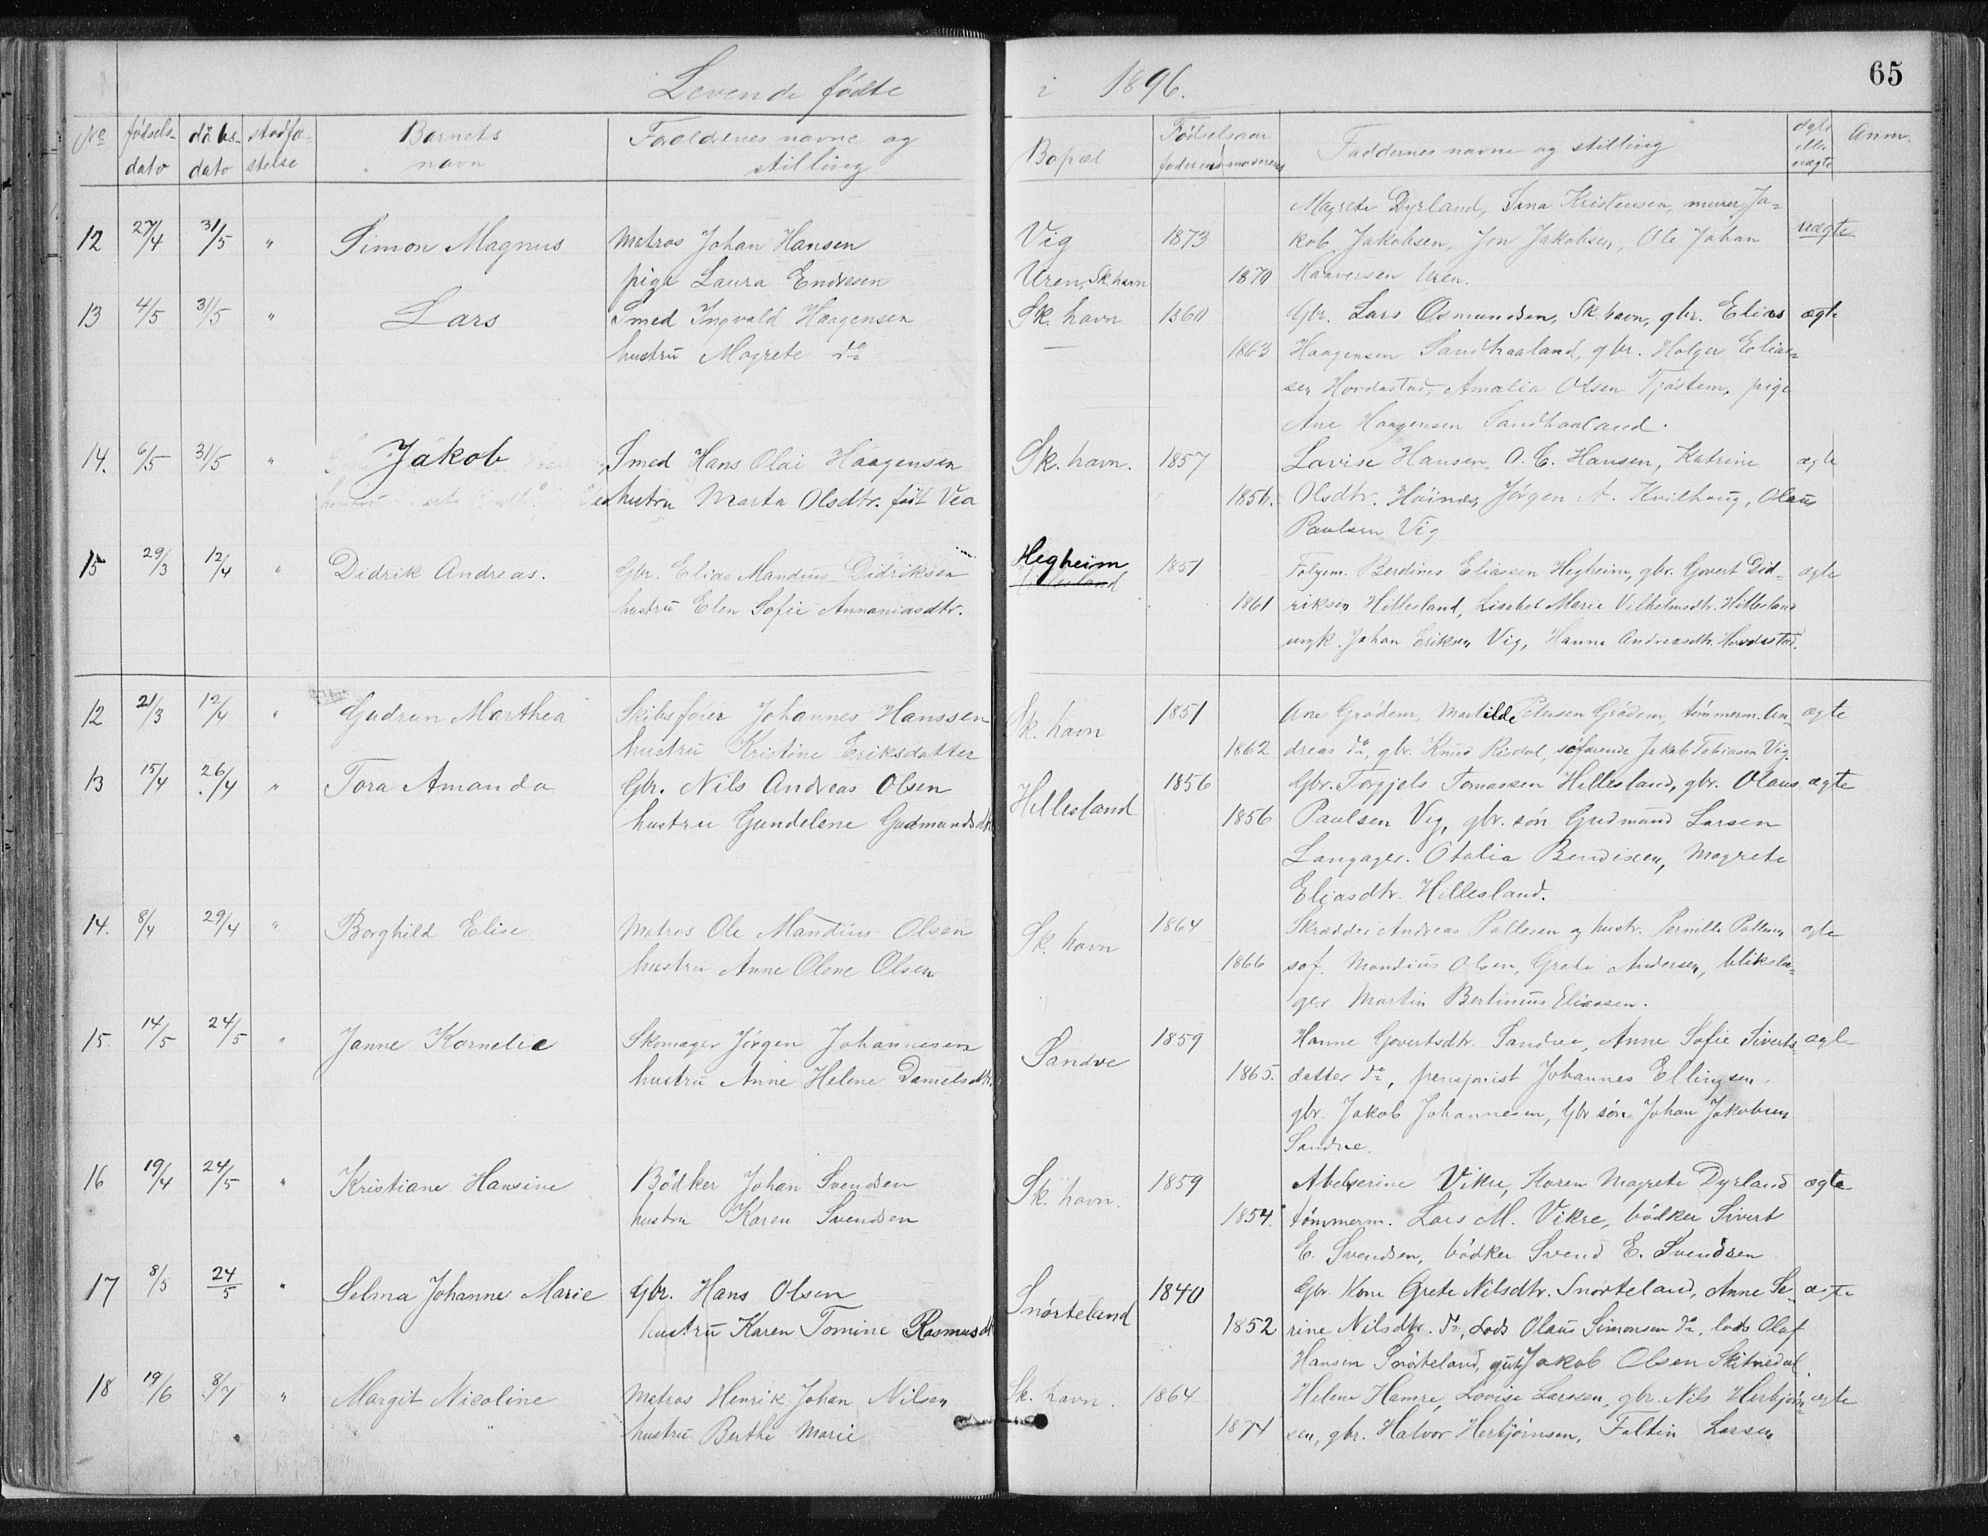 Levende fødte i 1896. 65
No fødsels- dåbs- stadfæ- Barnets Forældrenes navne og Bopæl Fødselsaar Faddernes navne og stilling ægte Anm.
dato dato stelse navn stilling faderens moderens eller uægte
Magrete Dyrland, Sina Kristensen, murer Ja-
12 27/4 31/5 " Simon Magnus Matros Johan Hansen Vig 1873 kob Jakobsen, Jon Jakobsen, Ole Johan uægte
pige Laura Endresen Uren, Sk. havn 1870 Haaversen Uren.
13 4/5 31/5 " Lars Smed Ingvald Haagensen Sk. havn 1860 Gbr. Lars Osmundsen, Sk. havn, gbr. Elias ægte
hustru Magrete do 1863 Haagensen Sandhaaland, gbr. Holger Elias-
sen Hovdastad, Amalia Olsen Tjøstem, pige
Ane Haagensen Sandhaaland.
14. 6/5 31/5 " Jakob Smed Hans Olai Haagensen Sk. havn. 1857 Lovise Hansen, A. C. Hansen, Katrine ægte
hustru Marta Olsdtr. født Vea 1856. Olsdtr. Høines, Jørgen A. Kvilhaug, Olaus
Paulsen Vig
15 29/3 12/4 " Didrik Andreas. Gbr. Elias Mandius Didriksen Hegheim 1851 Folgem. Berdines Eliassen Hegheim, gbr. Govert Did- ægte
hustru Elen Sofie Annaniasdtr. Hillesland 1861 riksen Hillesland, Lisabet Marie Vilhelmsdtr. Hillesland
ungk. Johan Eriksen Vig, Hanna Andreasdtr. Hovdastad.
12 21/3 12/4 " Gudrun Marthea Skibsfører Johannes Hanssen Sk. havn 1851 Ane Grødem, Martilde Petersen Grødem, tømmerm. An- ægte
hustru Kristine Eriksdatter 1862 dreas do, gbr. Knud Risdal, søfarende Jakob Tobiasen Vig.
13 15/4 26/4 " Tora Amanda Gbr. Nils Andreas Olsen Hillesland 1856 Gbr. Torgjels Tomassen Hillesland, gbr. Olaus ægte
hustru Gundelene Gudmundsdtr 1856 Paulsen Vig, gbr. søn Gudmund Larsen
Langager. Otalia Bendixen, Magrete
Eliasdtr. Hillesland.
14. 8/4 29/4 " Borghild Elise Matros Ole Mandius Olsen Sk. havn 1864 Skrædder Andreas Pallesen og hustr. Pernille Pallesen ægte
hustru Anne Olene Olsen 1866 søf. Mandius Olsen, Grete Andersen, bliksla-
ger Martin Bertinius Eliassen.
15. 14/5 24/5 " Janne Kornelie Skomager Jørgen Johannesen Sandve 1859 Hanne Govertsdtr. Sandve, Anne Sofie Siverts- ægte
hustru Anne Helene Danielsdtr. 1865. datter do, pensjonist Johannes Ellingsen.
gbr. Jakob Johannesen, Gbr søn Johan Jakobsen
Sandve.
16 19/4 24/5 " Kristiane Hansine Bødker Johan Svendsen Sk. havn. 1859 Abelserine Vikre, Karen Magrete Dyrland ægte
hustru Karen Svendsen 1854. tømmerm. Lars M. Vikre, bødker Sivert
E. Svendsen, bødker Svend E. Svendsen
17 8/5 24/5 " Selma Johanne Marie Gbr. Hans Olsen Snørteland 1840 Gbr. Kone Grete Nilsdtr. Snørteland, Anne Se- ægte
hustru Karen Tomine Rasmusdt 1852 rine Nilsdtr. do, Lods Olaus Simonsen do, lods Olaf
Hansen Snørteland, gut Jakob Olsen Skitnedal.
18 19/6 8/7 " Margit Nicoline Matros Henrik Johan Nilsen Sk. havn. 1864 Helene Hamre, Lovise Larssen, gbr. Nils Herbjørn- ægte
hustru Berthe Marie 1874 sen, gbr. Halvor Herbjørnsen, Faltin Larsen